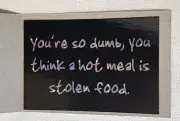 You're so dumb, you
think a hot meal is
stolen food.